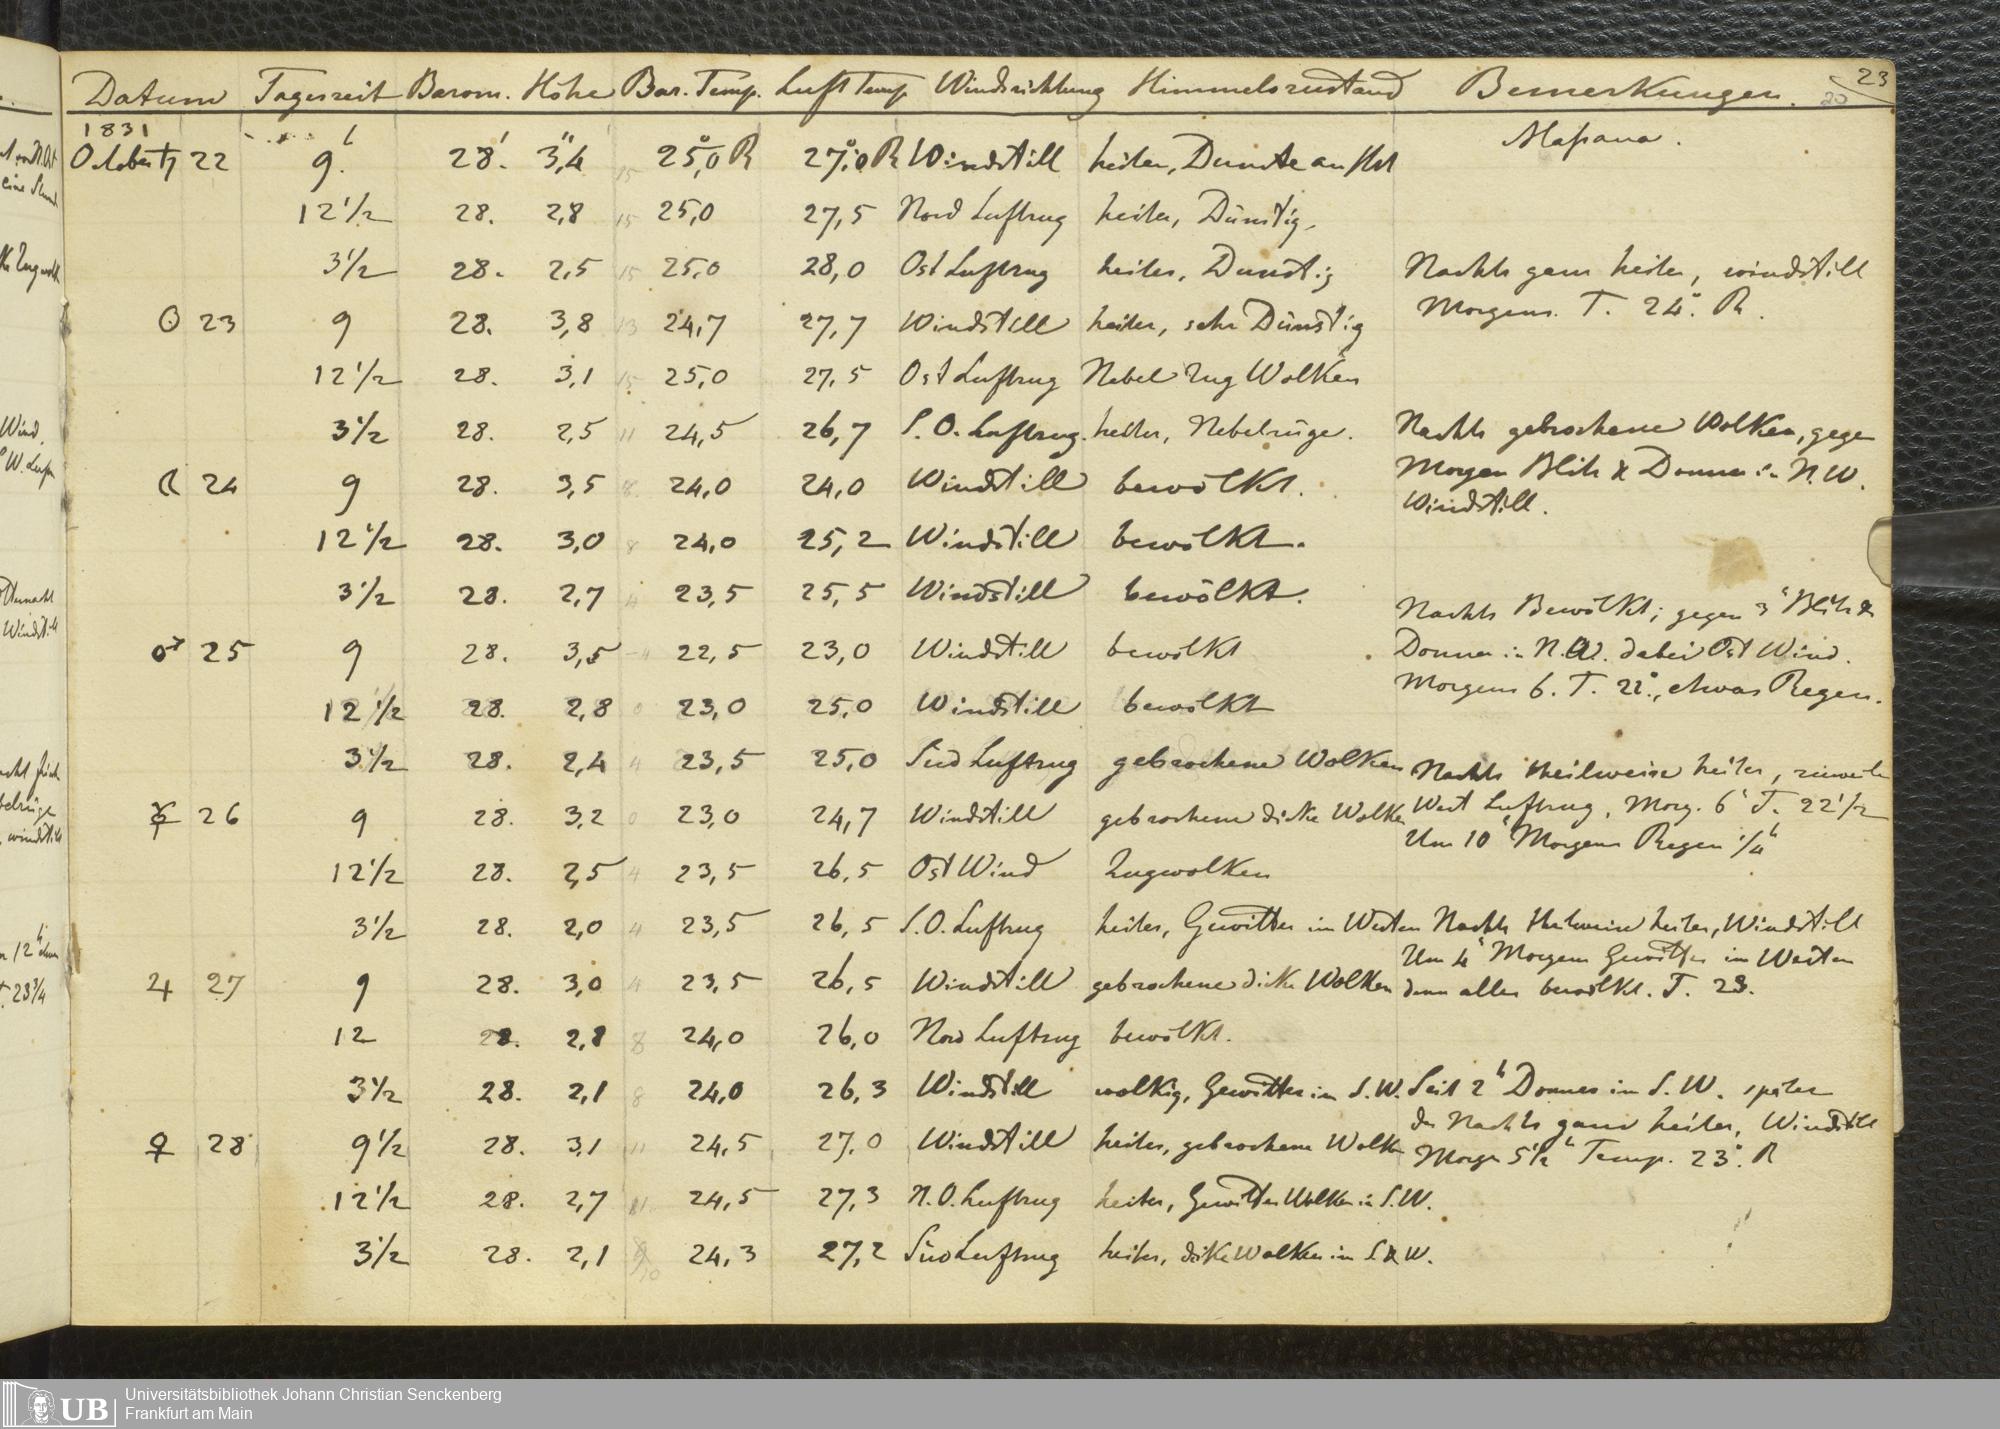 Datum Tageszeit Barom. Höhe Bar. Temp. Luft Temp Windrichtung Himmelszustand Bemerkungen. 20 23
1831 Massaua.
October ♄ 22 9h 28.' 3,"4 15 25,°0 R 27,°0 R Windstill heiter, Dünste am Hor
12 1/2 28. 2,8 15 25,0 27,5 Nord Luftzug heiter, Dünstig.
3 1/2 28. 2,5 15 25,0 28,0 Ost Luftzug heiter, Dunstig Nachts ganz heiter, windstill
Morgens. T. 24°. R.
☉ 23 9 28. 3,8 13 24,7 27,7 Windstill heiter, sehr Dünstig
12 1/2 28. 3,1 15 25,0 27,5 Ost Luftzug Nebel Zug Wolken
3 1/2 28. 2,5 11 24,5 26,7 S. O. Luftzug. heiter, Nebelzüge. Nachts gebrochene Wolken, gegen
Morgen Blitz & Donner in N. W.
☾ 24 9 28. 3,5 8 24,0 24,0 Windstill bewölkt. Windstill.
12 1/2 28. 3,0 8 24,0 25,2 Windstill bewölkt.
3 1/2 28. 2,7 4 23,5 25,5 Windstill bewölkt. Nachts Bewölkt; gegen 3h Blitz &
♂ 25 9 28. 3,5 -4 22,5 23,0 Windstill bewolkt Donner in N.W. dabei Ost Wind.
Morgens 6. T. 22°., etwas Regen.
12 1/2 28. 2,8 0 23,0 25,0 Windstill bewölkt
3 1/2 28. 2,4 4 23,5 25,0 Süd Luftzug gebrochene Wolken Nachts theilweise heiter, zuweilen
☿ 26 9 28. 3,2 0 23,0 24,7 Windstill gebrochene dicke Wolken West Luftzug, Morg. 6h T. 22 1/2
Um 10h Morgens Regen 1/4h
12 1/2 28. 2,5 4 23,5 26,5 Ost Wind Zugwolken
3 1/2 28. 2,0 4 23,5 26,5 S. O. Luftzug heiter, Gewitter im Westen Nachts theilweise heiter, Windstill
Um 4h Morgens Gewitter im Westen
♃ 27 9 28. 3,0 4 23,5 26,5 Windstill gebrochene dicke Wolken dann alles bewölkt. T. 23.
12 28. 2,8 8 24,0 26,0 Nord Luftzug bewölkt.
3 1/2 28. 2,1 8 24,0 26,3 Windstill wolkig, Gewitter in S. W. Seit 2h Donner im S. W. später
des Nachts ganz heiter, Windstill
♀ 28 9 1/2 28. 3,1 11 24,5 27,0 Windstill heiter, gebrochene Wolken Morgen 5 1/2h Temp. 23°. R
12 1/2 28. 2,7 11 24,5 27,3 N. O. Luftzug heiter, Gewitter Wolken in S. W.
3 1/2 28. 2,1 10 24,3 27,2 Süd Luftzug heiter, dicke Wolken im S & W.
UB Universitätsbibliothek Johann Christian Senckenberg
Frankfurt am Main